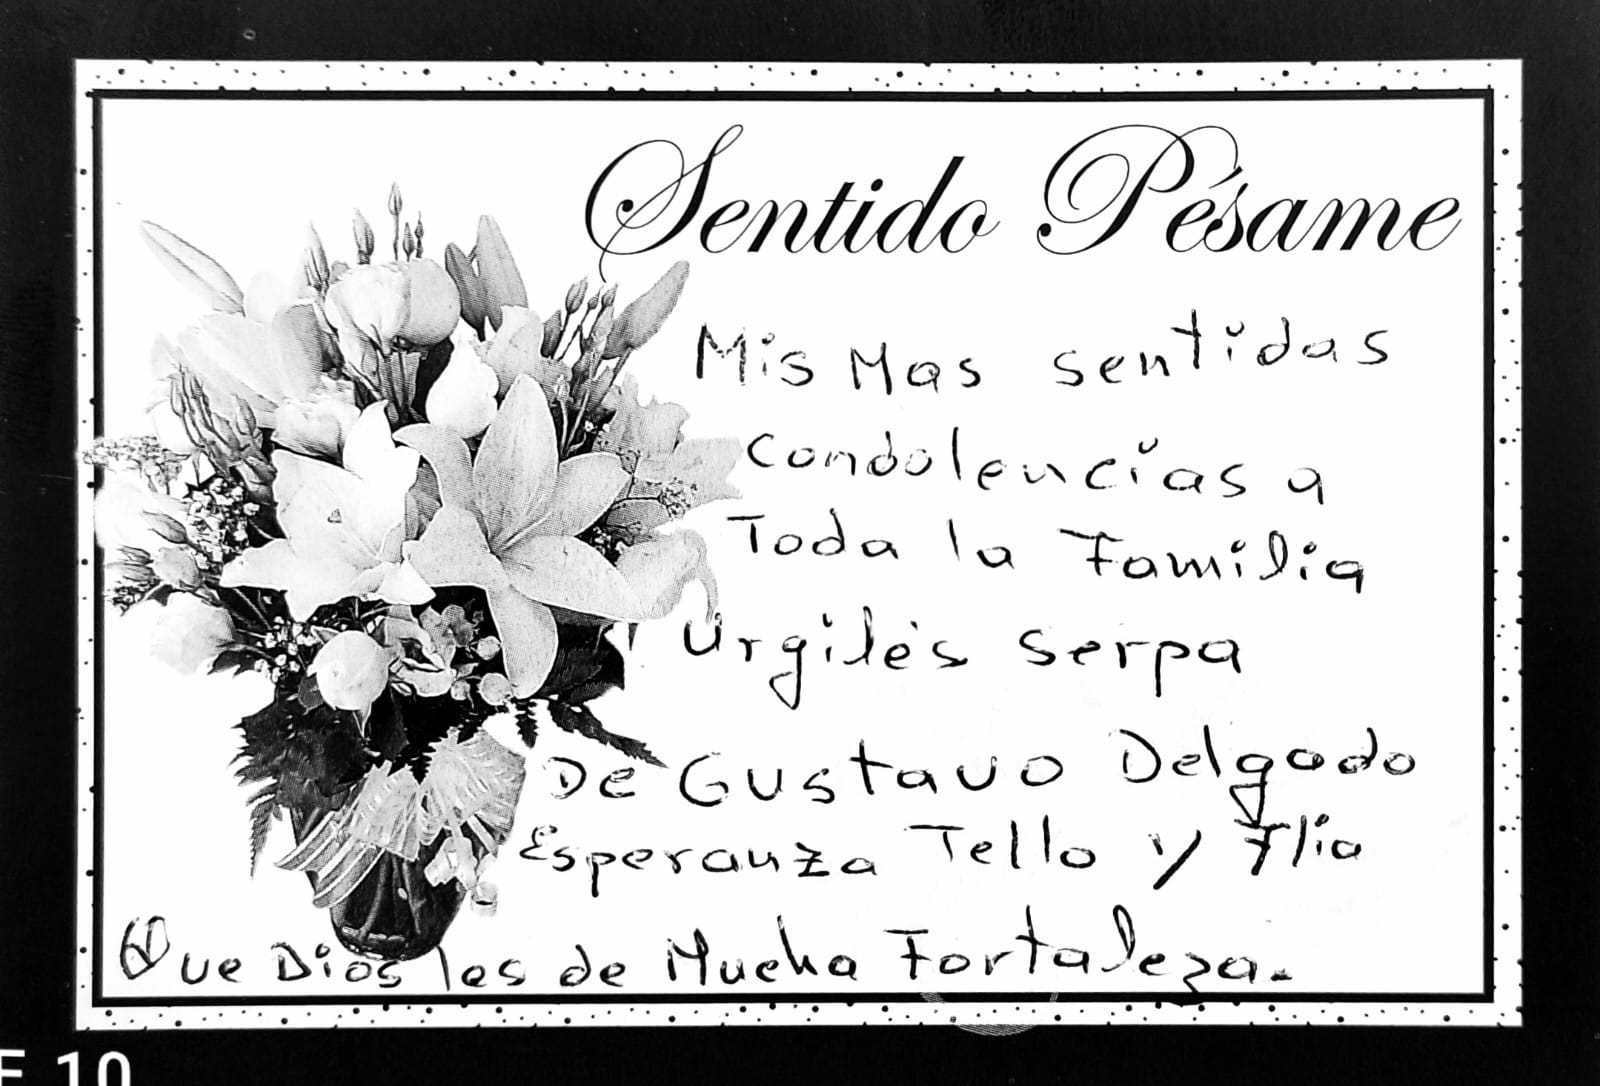 Sentido Pésame
Mis Mas sentidas
Condolencias a
Toda la Familia
Urgilés Serpa
De Gustavo Delgado
Esperanza Tello y Flia
Que Dios les de Mucha Fortaleza.
E 10